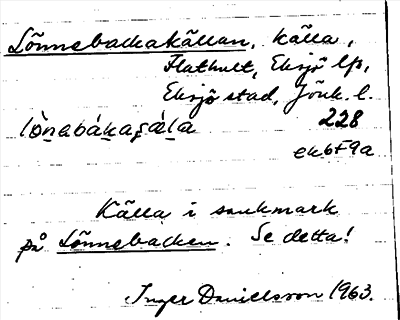 Lönnebackakällan, källa,
Flathult, Eksjö lfs,
Eksjö stad, Jönk. l.
228
ek 6F9a
Källa i sankmark
på Lönnebacken. Se detta!
Inger Danielsson 1963.